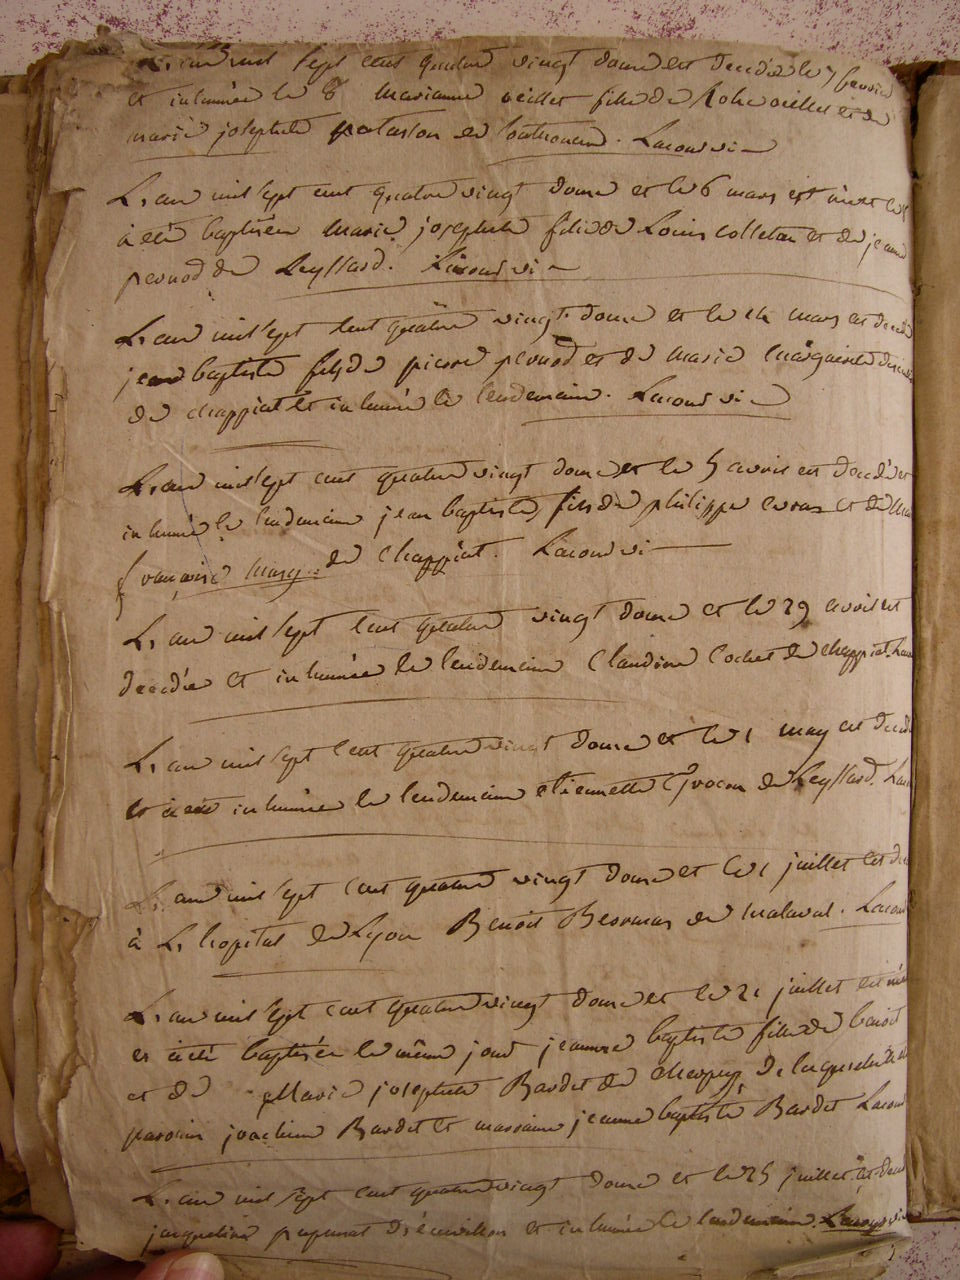 L'an mil sept cent quatre vingt douze est decedée le 7 fevrier
et inhumée le 8 marianne veillet fille de veillet et de
marie josephte en Lacour vi
L'an mil sept cent quatre vingt douze et le 6 mars est née et
à été baptisée marie josephte fille de Louis colletaz et de jeanne
pernod de Leyssard. Lacour vi
L'an mil sept cent quatre vingt douze et le 14 mars est decedé
jean baptiste fils de pierre pernod et de marie
de chappiat et inhumé le lendemain. Lacour vi
L'an mil sept cent quatre vingt douze et le 5 avril est decedé et
inhumé le lendemain jean baptiste fils de philippe et de
françoise mary de chappiat. Lacour vi
L'an mil sept cent quatre vingt douze et le 29 avril est
decedée et inhumée le lendemain Claudine Cochet de chappiat.
L'an mil sept cent quatre vingt douze et le 1 may est
et à été inhumée le lendemain etiennette de Leyssard.
L'an mil sept cent quatre vingt douze et le 1 juillet est
à L'hopital de Lyon Benoit de malaval. Lacour
L'an mil sept cent quatre vingt douze et le 21 juillet est née
et à été baptisée le même jour jeanne baptiste fille de benoit
et de Marie josephte Bardet de
parrain joachim Bardet et marraine jeanne baptiste Bardet Lacour
L'an mil sept cent quatre vingt douze et le 25 juillet est
jaqueline et inhumée le lendemain. Lacour vi